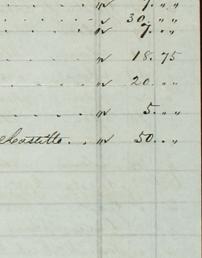 7 " "
30 " "
7 " "
" 18.75
" 20 " "
" 5 " "
Castillo " 50 " "